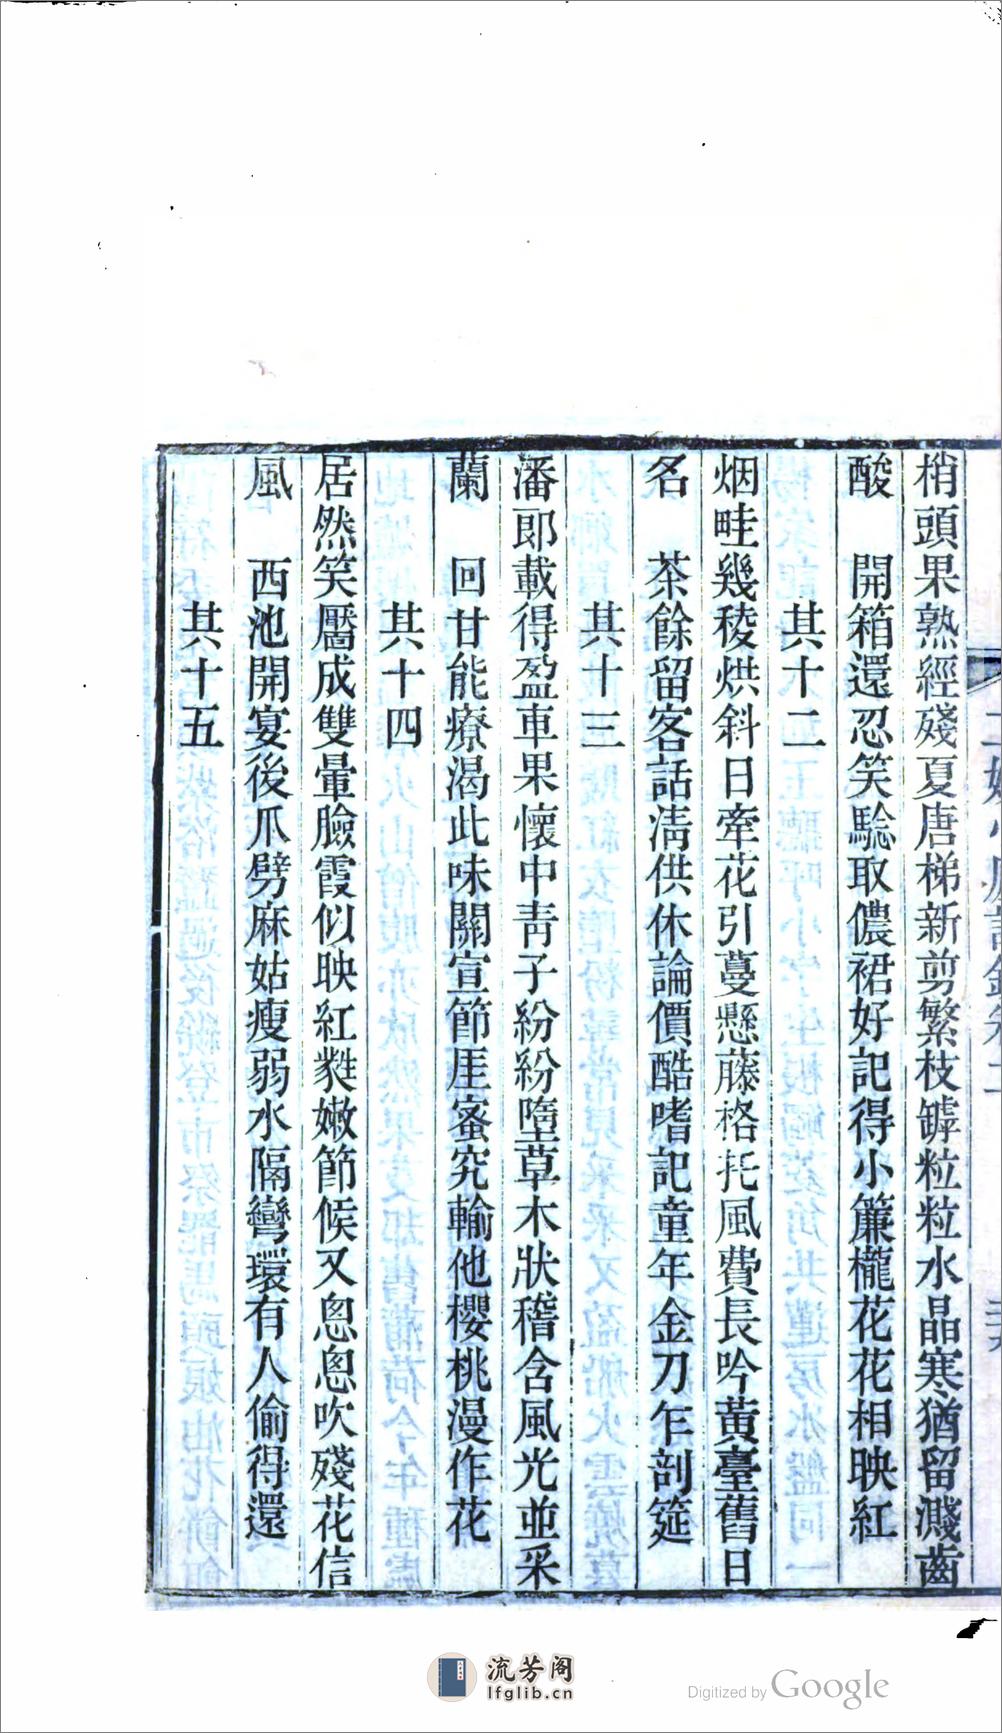 梢頭果熟經殘夏唐梯新剪繁枝罅粒粒水晶寒猶留濺齒
酸　開箱還忍笑驗取儂裙好記得小簾櫳花花相映紅
其十二
烟畦幾稜烘斜日牽花引蔓懸藤格托風費長吟黃臺舊日
名　茶餘留客話淸供休論價酷嗜記童年金刀乍剖筵
其十三
潘郞載得盈車果懷中靑子紛紛墮草木狀嵇含風光並采
蘭　回甘能療渴此味關宣節厓蜜究輸他櫻桃漫作花
其十四
居然笑靨成雙暈臉霞似映紅㽔嫩節候又悤悤吹殘花信
風　西池開宴後爪劈麻姑瘦弱水隔彎環有人偷得還
其十五
流芳阁
lfglib.cn
Digitized by Google